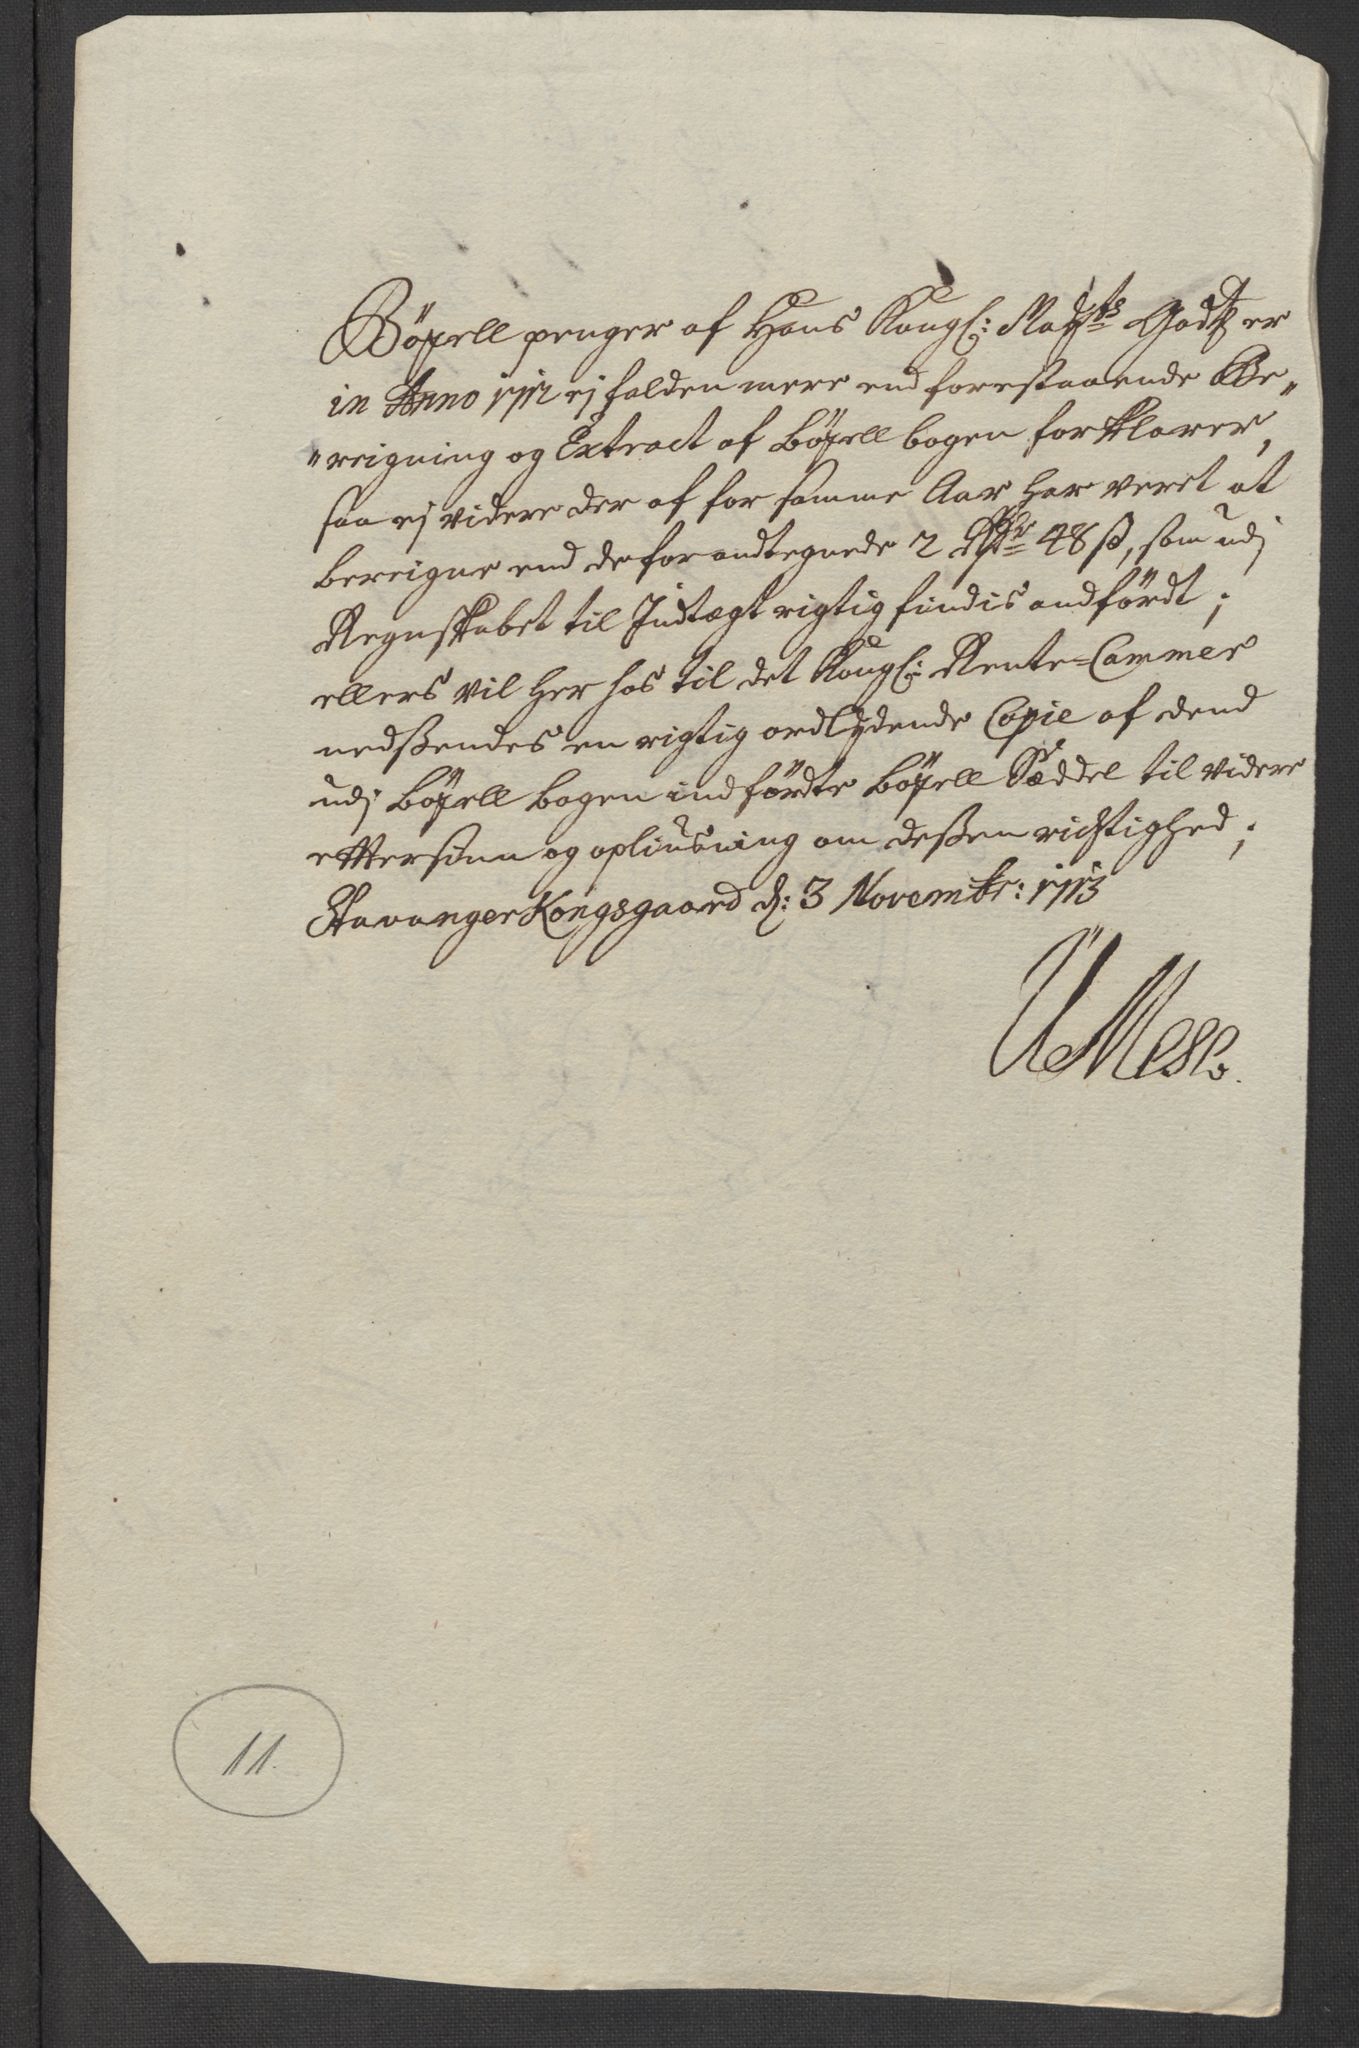 Böxell penger af Hans Kongl: Mayts Godtz er
in Anno 1712 ej falden mere end forestaaende Be„
„reigning og Extract af böxell bogen forklarer,
saa ej videre der af for samme Aar har veret at
bereigne end de forandtegnede 2 Rdr 48 ß, som udj
Regnskabet til Indtægt rigtig findis andfördt;
ellers vil her hos til det Kongl: Rente-Cammer
nedßendes en rigtig ordlydende Copie af dend
udj böxell bogen indfördte böxell Sæddel til videre
efftersiun og opliusning om deßen rictighed;
Stavanger Kongsgaard d: 3 Novembr: 1713
11.